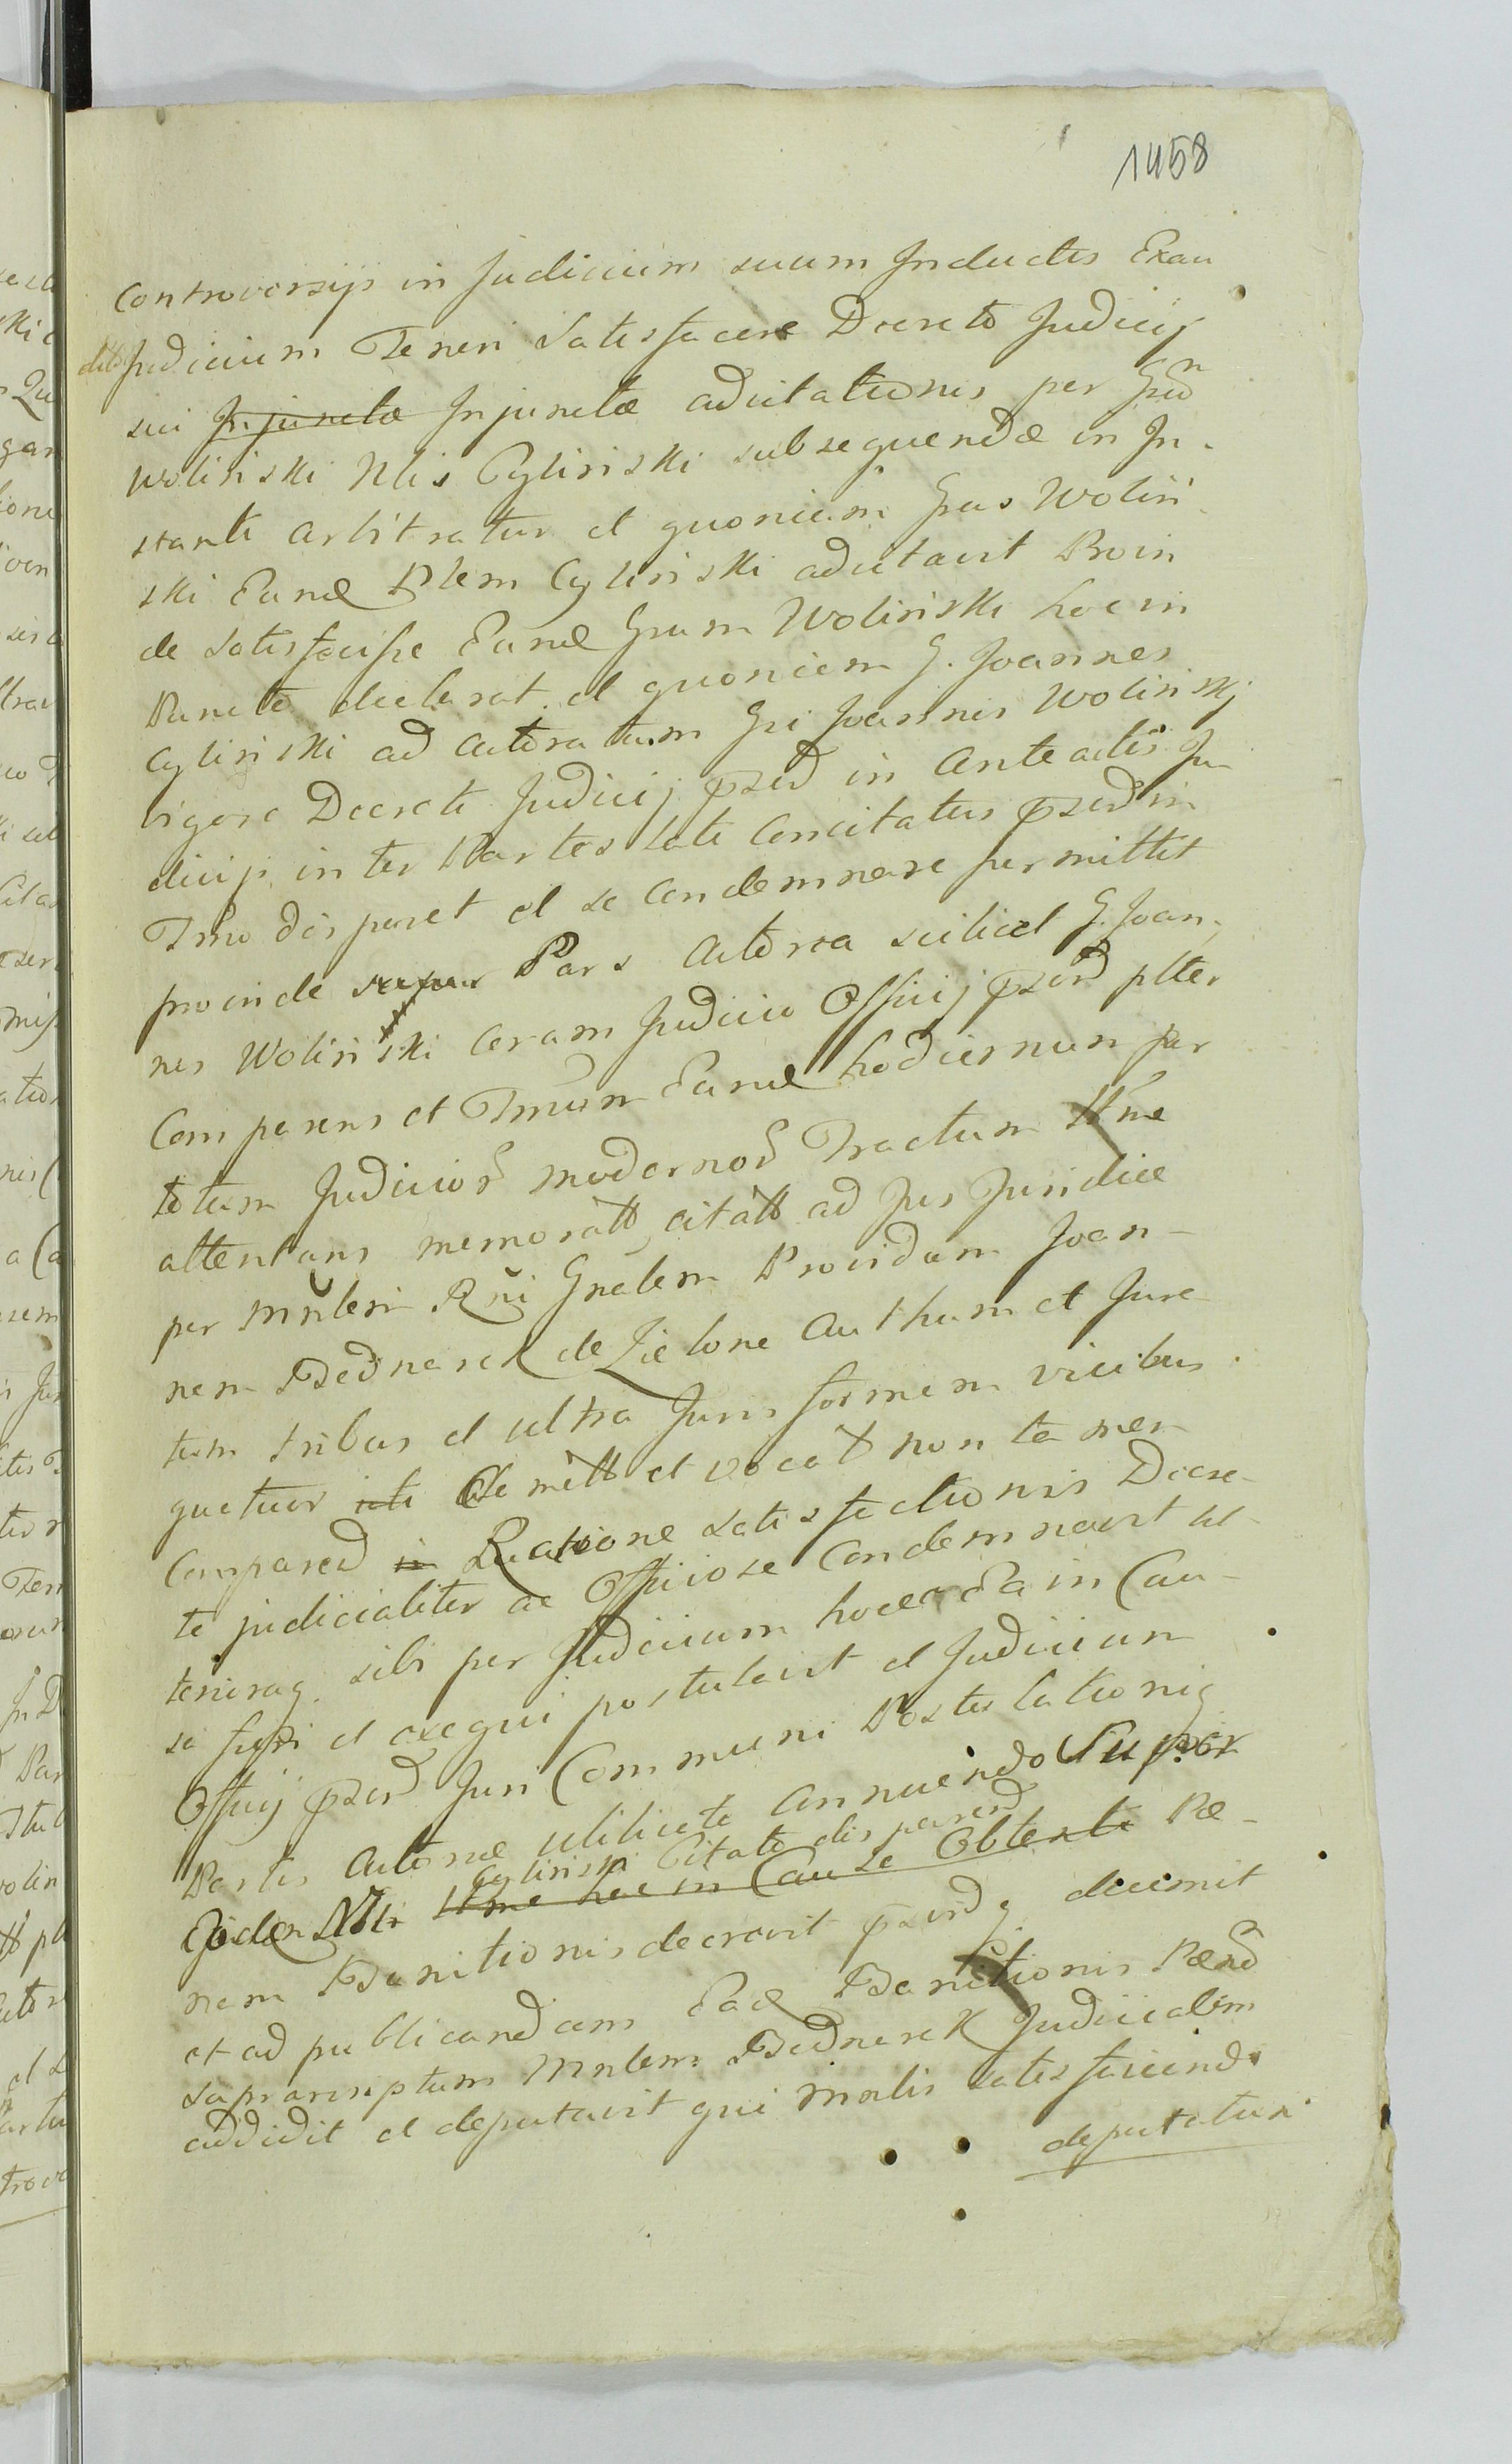 1458
Controversijs in Judicium suum Inductis Exau
ditis Judicium Teneri Satisfacere Decreto Judicij
sui Injunctæ Injunctæ adcitationis per Gsũ
Woliński Nlis Cyliński subsequendæ in In-
stanti arbitratur et quoniam Gsus Woliń
ski Eund Nlem Cyliński adcitavit Proin
de satisfecisse Eund Gsum Woliński hoc in
Puncto declarat. et quoniam G. Joannes
Cyliński ad Actoratum Gsi Joannis Wolińskj
vigore Decreti Judicij pzsd in Anteactis Ju
dicijs inter Partes lati Concitatus pzsd in
Tmo disparet et se Condemnare permittit
proinde Pars Actorea scilicet G. Joan-
nes Woliński Coram Judicio Officij pzsd plter
Comparens et Tmum Eund hodiernum per
totum Judicior modernor Tractum Ttme
attentans memoratt citatt ad Jus Juridice
per Mnlem Rni Gnalem Providum Joan-
nem Bednarek de Zielone Authum et Jura-
tum tribus et ultra Juris formam vicibus
quatuor clamatt et vocatt non tamen
Compared in Ratione satisfactionis Decre-
to judicialiter ac Officiose Condemnavit ul-
teriusq. sibi per Judicium hocce Ea in Cau-
sa fieri et exequi postulavit et Judicium
Officij pzsd Juri Communi Postulationiq
Partis Actoreæ utilicite annuendo Super
Cyliński Citato disparend
Eodem Nli Ttme hac in Causa Obtenta Pæ-
nam Banitionis decrevit pzsdq. decernit
et ad publicandam Ead Banitionis Pænã
suprascriptum Mnlem Bednarek Judicialem
addidit et deputavit qui Mnlis satisfaciendo
deputatur.